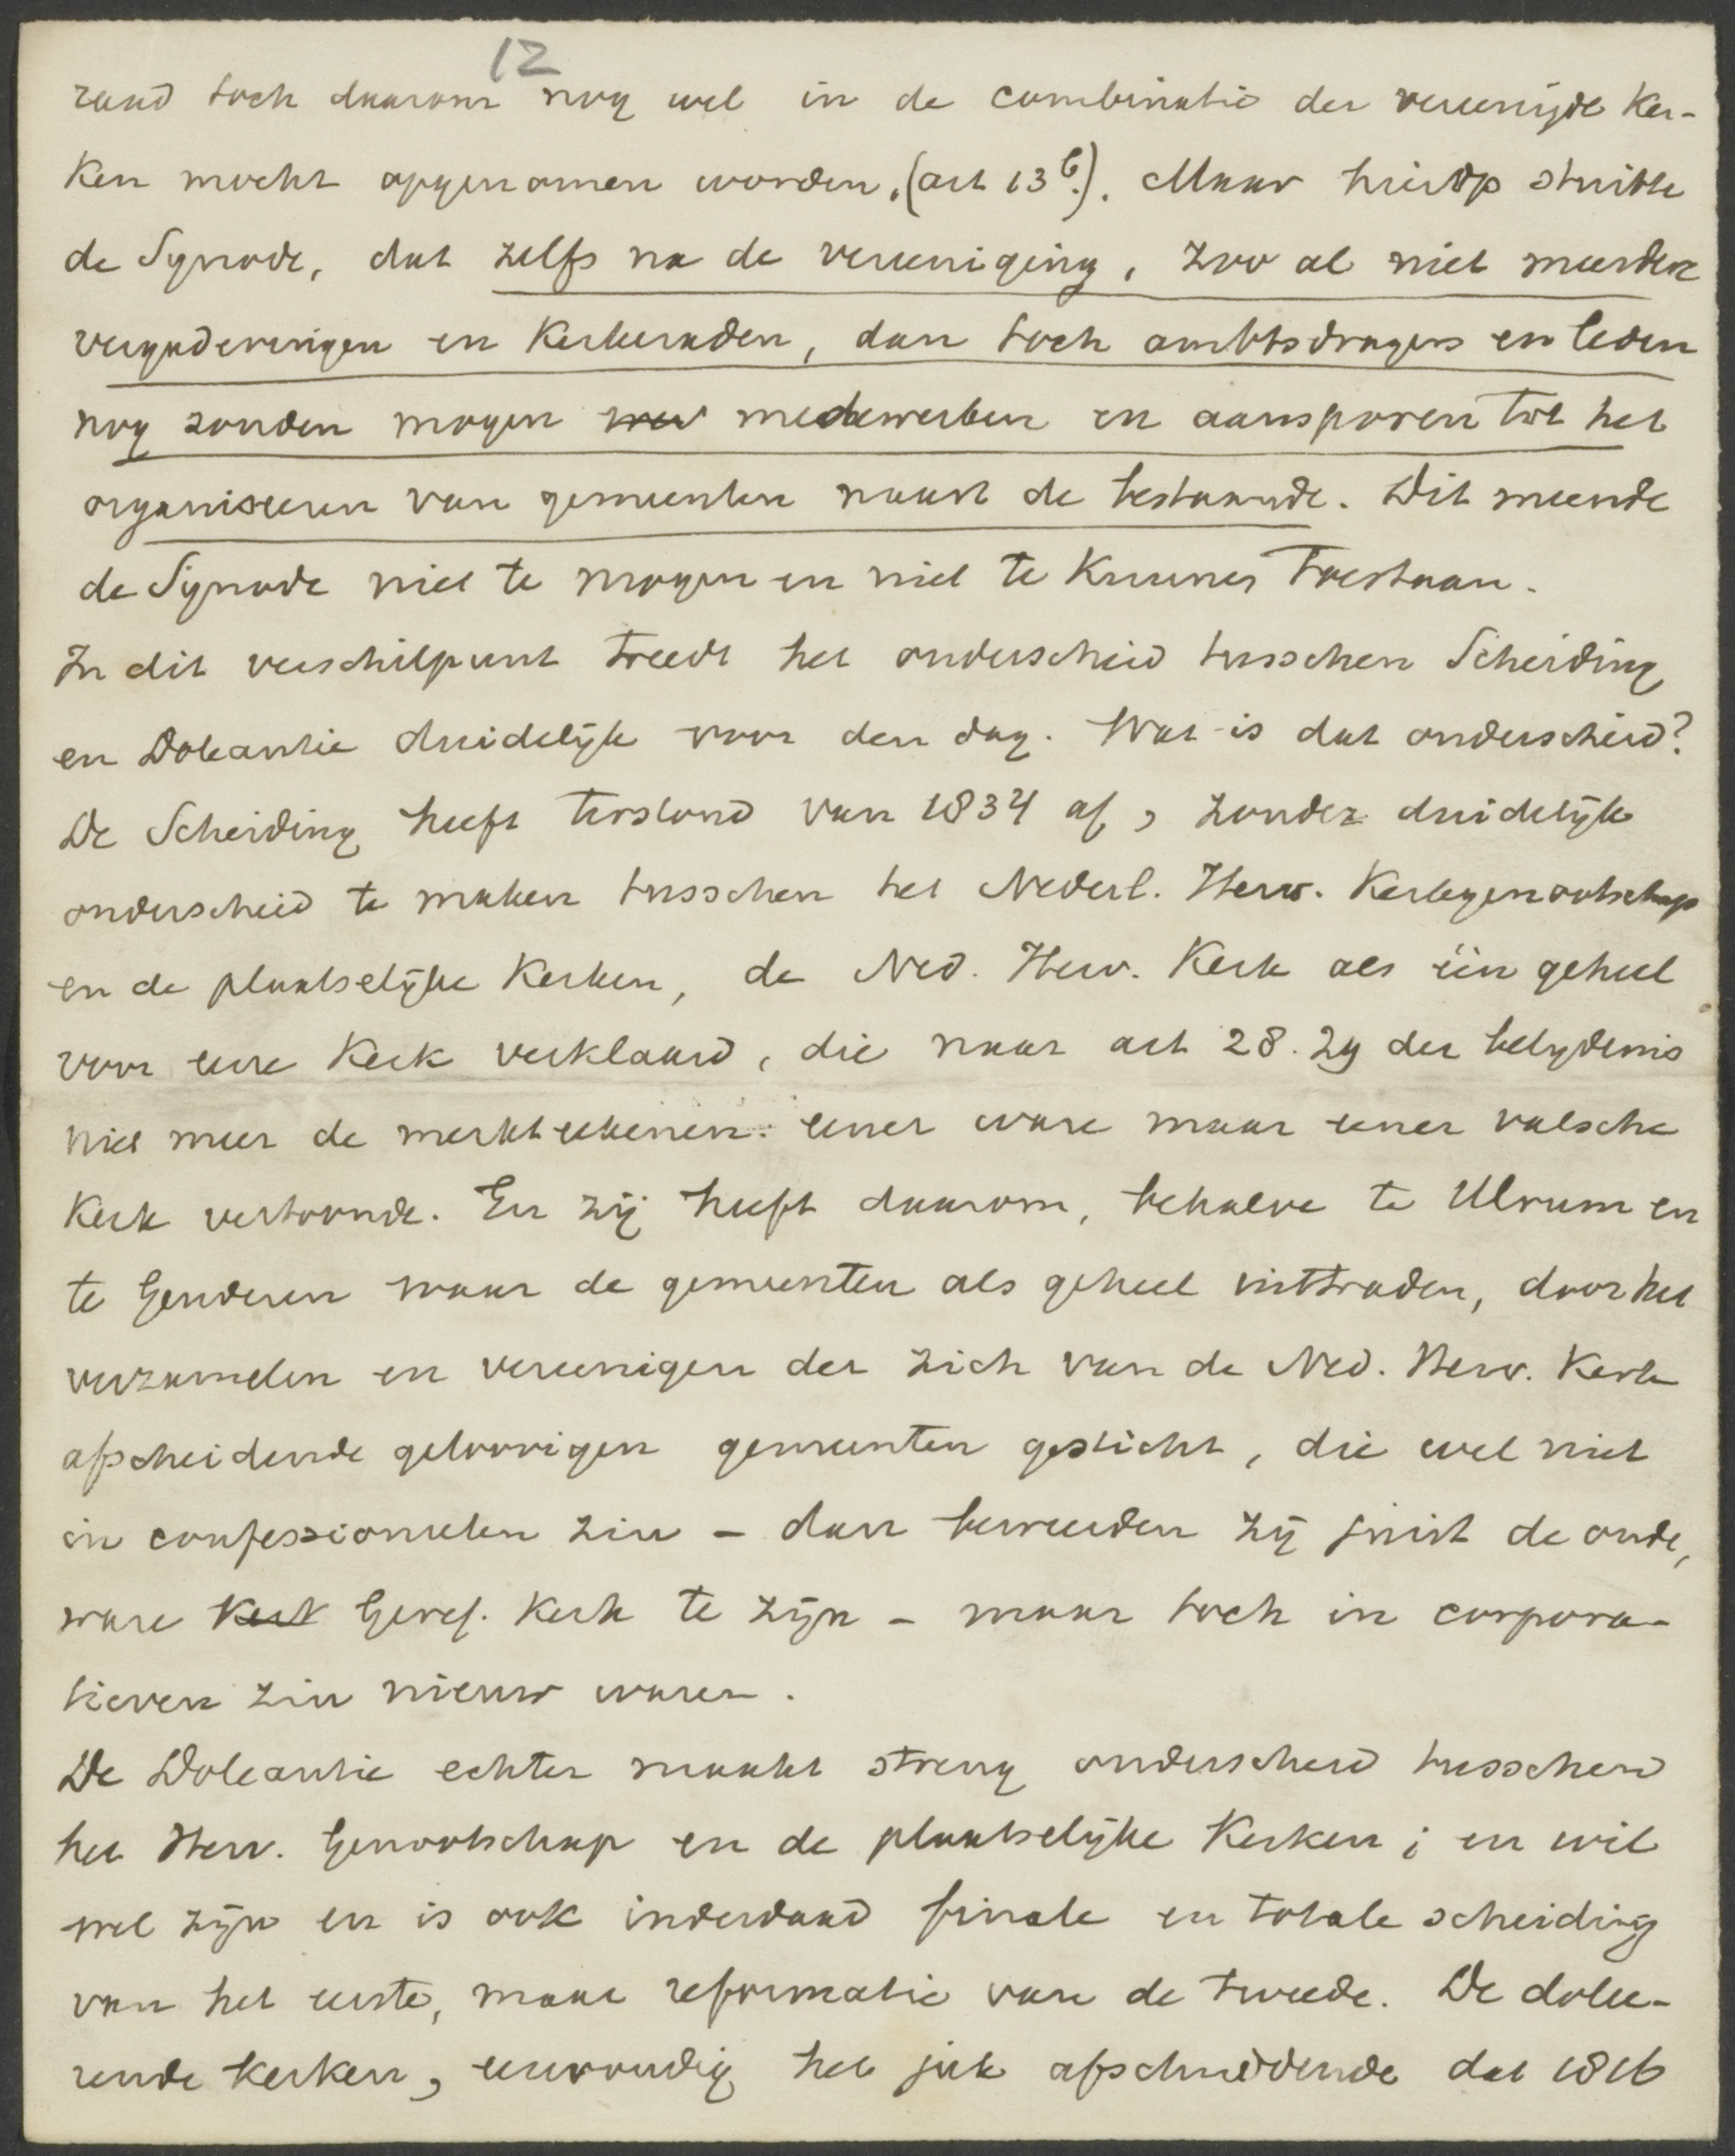 12
raad toch daarom nog wel in de combinatie der vereenigde Ker-
ken mocht opgenomen worden, (art 13b.). Maar hierop stuitte
de Synode, dat zelfs na de vereeniging, zoo al niet meerdere
vergaderingen en Kerkeraden, dan toch ambtsdragers en leden
nog zouden mogen medewerken en aansporen tot het
organiseeren van gemeenten naast de bestaande. Dit meende
de Synode niet te mogen en niet te Kunnen Toestaan.
In dit verschilpunt treedt het onderscheid tusschen Scheiding
en Doleantie duidelijk voor den dag. Wat is dat onderscheid?
De Scheiding heeft terstond van 1834 af, zonder duidelijk
onderscheid te maken tusschen het Nederl. Herv. Kerkgenootschap
en de plaatselijke Kerken, de Ned. Herv. Kerk als één geheel
voor eene Kerk verklaard, die naar art 28. 29 der belydenis
niet meer de merkteekenen eener ware maar eener valsche
Kerk vertoonde. En zij heeft daarom, behalve te Ulrum en
te Genderen waar de gemeenten als geheel uittraden, door het
verzamelen en vereenigen der zich van de Ned. Herv. Kerk
afscheidende geloovigen gemeenten gesticht, die wel niet
in confessioneelen zin - dan beweerden zij juist de oude,
ware Kerk Geref. Kerk te zijn - maar toch in corpora-
tieven zin nieuw waren.
De Doleantie echter maakt streng onderscheid tusschen
het Herv. Genootschap en de plaatselijke Kerken; en wil
wel zijn en is ook inderdaad finale en totale scheiding
van het eerste, maar reformatie van de tweede. De dolee-
rende Kerken, eenvoudig het juk afschuddende dat 1816